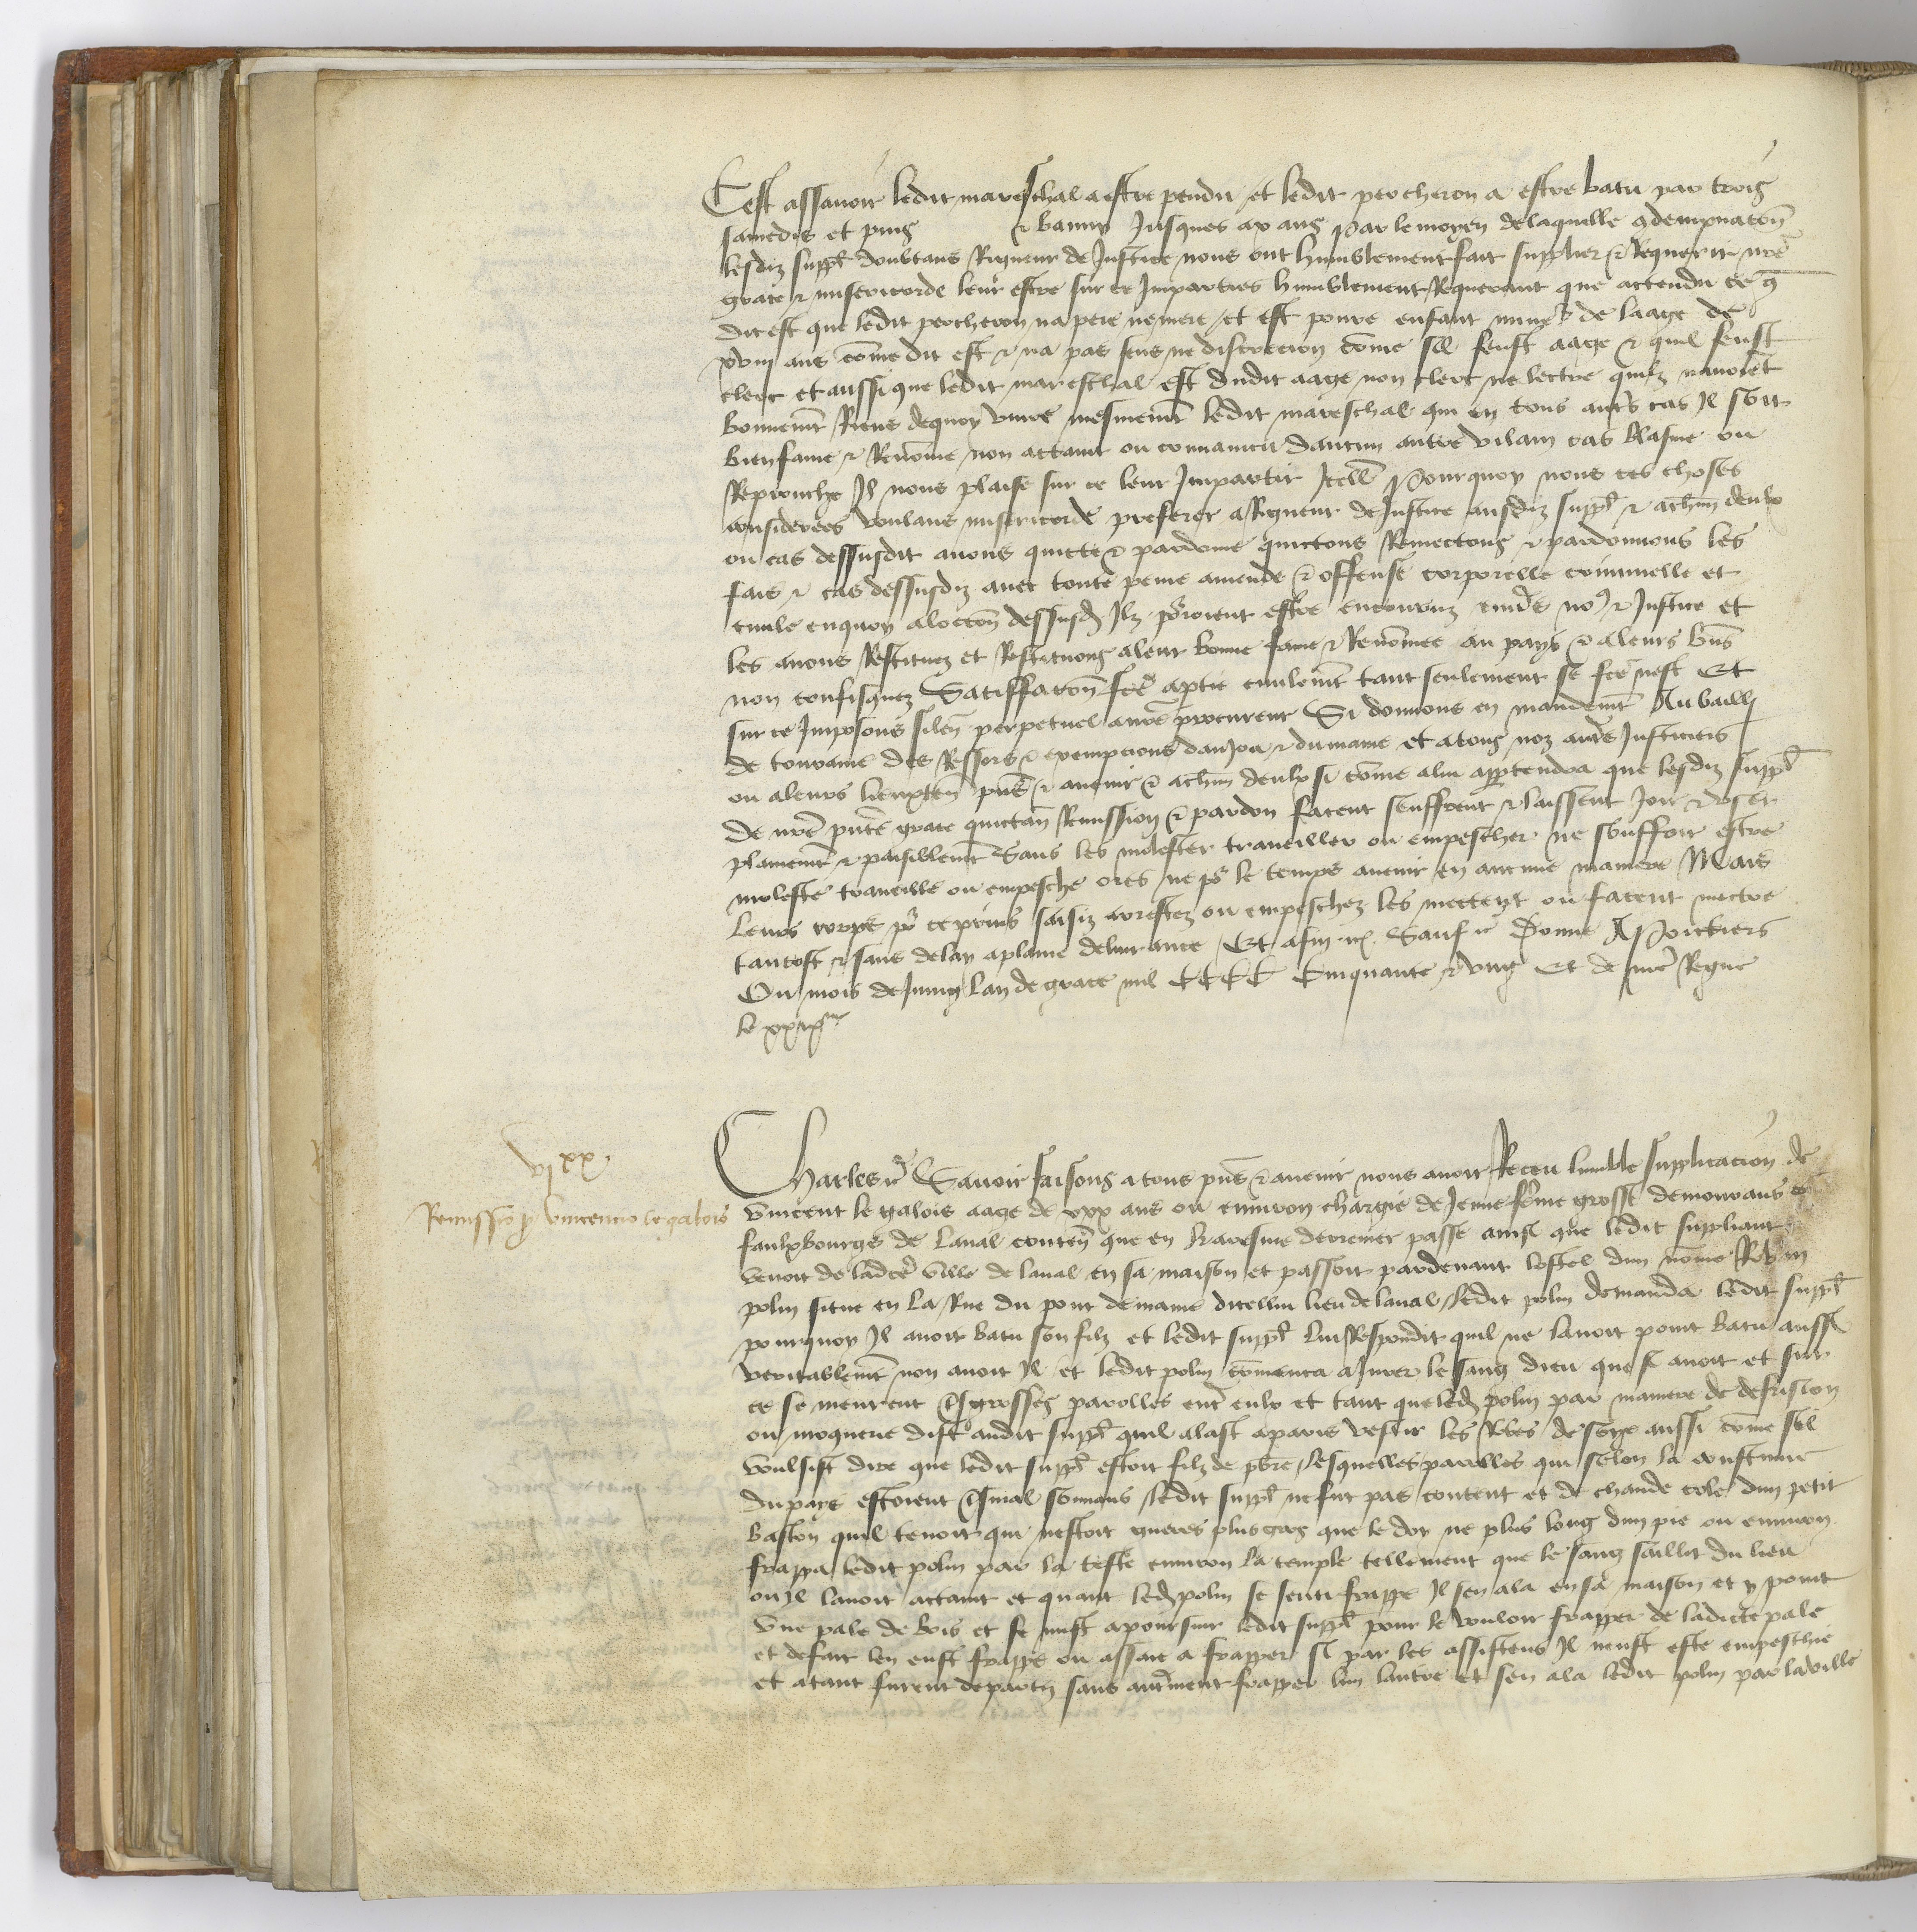 Cest assavoir ledit mareschal a estre pendu et ledit percheron a estre batu par trois
samedis et puis & banny Jusques a x ans Par le moyen de laquelle 9dempnacon
lesdiz supplˢ doubtans Rigueur de Justice nous ont humblement fait supplier & Requerir nre
grace & misericorde leur estre sur ce Imparties humblement Requerant que actendu ce q
dit est que ledit percheron na pere ne mere et est povre enfant mineˢ de laage de
xviii ans come dit est & na pas sens ne discrecion come sil feust aage & quil feust
clerc et aussi que ledit mareschal est dudit aage non clerc ne lectre quilz navoiet
bonnemt Riens dequoy vivre mesmemt ledit mareschal qui en tous autˢ cas Il soit
bien fame & Renome non actaint ou convaincu daucun autre vilain cas blasme ou
Reprouche Il nous plaise sur ce leur Impartir Icelle Pourquoy nous ces choses
considerees voulans misericorde preferer a Rigueur de Justice ausdiz supplˢ & achun deulx
ou cas dessusdit avons quicte & pardonne quictons Remectons & pardonnons les
fais & cas dessusdiz avec toute peine amende & offense corporelle criminelle et
civile enquoy alocćon dessusd Ilz porroient estre encouruz enivˢ no9 & Justice et
les avons Restituez et Restituons a leur bonne fame & Renommee au pays & a leurs bns
non confisquez Satisfacon fce aptie civilemt tant seulement se fce nest Et
sur ce Imposons silen perpetuel a nre procureur Si donnons en mandemt Au bailli
de touraine des Ressors & exempcions danjou & du maine et a tous noz autˢ Justiciers
ou a leurs lieuxten pns & avenir & achun deulx si come a lui appartendra que lesdiz supplˢ
de nre pnte grace quictan Remission & pardon facent seuffrent & laissent Joir & user
plainemt & paisiblemt Sans les molester travailler ou empescher ne souffrir estre
moleste travaille ou empesche ores ne po le temps avenir en aucune maniere Mais
leurs corps po ce prins saisiz arrestez ou empeschez les mectent ou facent mectre
tantost & sans delay aplaine delivrance Et afin &c Sauf &c Donne A Poictiers
Ou mois de Juing lan de grace mil CCCC Cinquante & ung Et de nre Regne
le xxixme

vixx
Remissio p vincencio le galois
Charles &c Savoir faisons a tous pns & avenir nous avoir Receu lumble supplicacion de
vincent le galois aage de xxx ans ou environ chargie de Jeune feme grosse demourans es
faulxbourgs de laval conten que en karesme derrenier passe ainsi que ledit suppliant
venoit de ladcte ville de laval en sa maison et passoit pardevant lostel dun nome Robin
polin situe en la Rue du pont de maine dicellui lieu de laval ledit polin demanda ledit supplˢ
pourquoy Il avoit batu son filz et ledit supplˢ lui Respondit quil ne lavoit point batu aussi
veritablemt non avoit Il et ledit polin commenca a Jurer le sang dieu que si avoit et sur
ce se meurent gross parolles entˢ eulx et tant que led polin par maniere de derision
ou moquerie dist audit supplˢ quil alast a paris vestir les Robes de serge aussi come sil
voulsist dire que ledit supplˢ estoit filz de pbre lesquelles parolles qui selon la coustume
du pays estoient mal sonnans ledit supplˢ ne fut pas content et de chaude cole dun petit
baston quil tenoit qui nestoit gueres plus gros que le doy ne plus long dun pie ou environ
frappa ledit polin par la teste environ la temple tellement que le sang saillit du lieu
ou Il lavoit actaint et quant led polin se senti frappe Il sen ala en sa maison et y print
une pale de bois et se mist a poursuir ledit supplˢ pour le vouloir frapper de ladicte pale
et de fait len eust frappe ou essaie a frapper si par les assistens Il neust este empeschie
et atant furent departiz sans autˢment frapper lun lautre et sen ala ledit polin par la ville